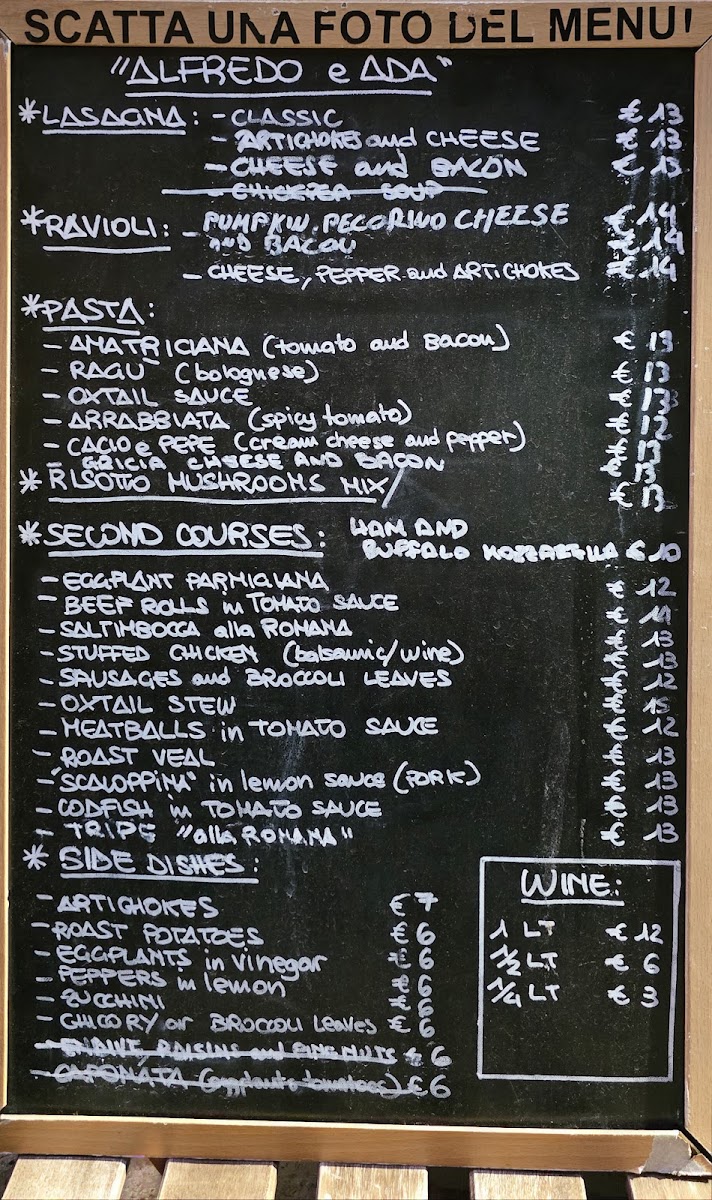 SCATTA UNA FOTO DEL MENU!
"ALFREDO e ADA"
*LASAGNA: - CLASSIC € 13
- ARTICHOKES and CHEESE € 13
- CHEESE and BACON € 13
- CHICKPEA SOUP
*RAVIOLI: - PUMPKIN, PECORINO CHEESE € 14
AND BACON € 14
- CHEESE, PEPPER and ARTICHOKES € 14
*PASTA:
- AMATRICIANA (tomato and BACON) € 13
- RAGÙ (bolognese) € 13
- OXTAIL SAUCE € 13
- ARRABBIATA (spicy tomato) € 12
- CACIO e PEPE (cream cheese and pepper) € 13
- GRICIA CHEESE AND BACON € 13
* RISOTTO MUSHROOMS MIX/ € 13
*SECOND COURSES: HAM AND
BUFFALO MOZZARELLA € 10
- EGGPLANT PARMIGIANA € 12
- BEEF ROLLS in TOMATO SAUCE € 14
- SALTIMBOCCA alla ROMANA € 13
- STUFFED CHICKEN (balsamic/wine) € 13
- SAUSAGES and BROCCOLI LEAVES € 12
- OXTAIL STEW € 15
- MEATBALLS in TOMATO SAUCE € 12
- ROAST VEAL € 13
- "SCALOPPINA" in lemon sauce (PORK) € 13
- CODFISH in TOMATO SAUCE € 13
- TRIPE "alla ROMANA" € 13
* SIDE DISHES:
- ARTICHOKES € 7
- ROAST POTATOES € 6
- EGGPLANTS in vinegar € 6
- PEPPERS in lemon € 6
- ZUCCHINI € 6
- CHICORY or BROCCOLI Leaves € 6
RAISINS and PINE NUTS € 6
- CAPONATA (eggplants tomatoes) € 6
WINE:
1 LT € 12
1/2 LT € 6
1/4 LT € 3